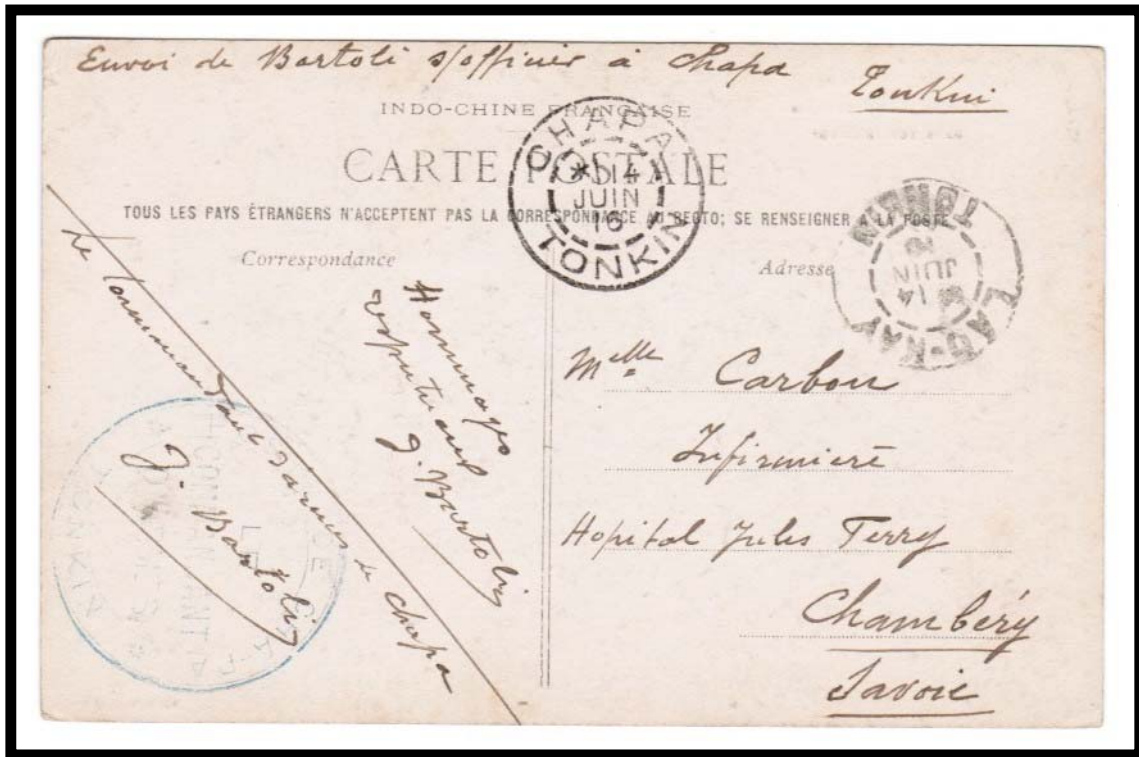 Envoi de Bartoli s/officier à Chapa Tonkin
INDO-CHINE FRANÇAISE
CARTE POSTALE
TOUS LES PAYS ÉTRANGERS N'ACCEPTENT PAS LA CORRESPONDANCE AU RECTO; SE RENSEIGNER A LA POSTE
Correspondance
Adresse
CHAPA
14
JUIN
16
TONKIN
TONKIN
14
JUIN
LAO-KAY
Hommages
respectueux
J. Bartoli
Le Commandant d'armes de Chapa
J. Bartoli
LE COMMANDANT
Melle Carbon
Infirmière
Hopital Jules Ferry
Chambéry
Savoie